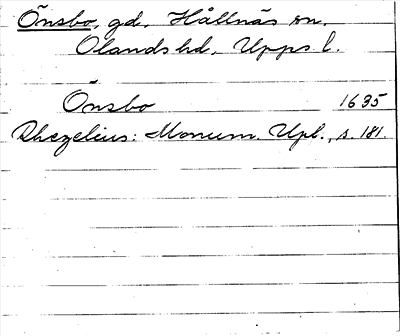 Önsbo, gd, Hållnäs sn.
Olands hd, Upps l.
Önsbo 1635
Rhezelius: Monum. Upl., s. 181.